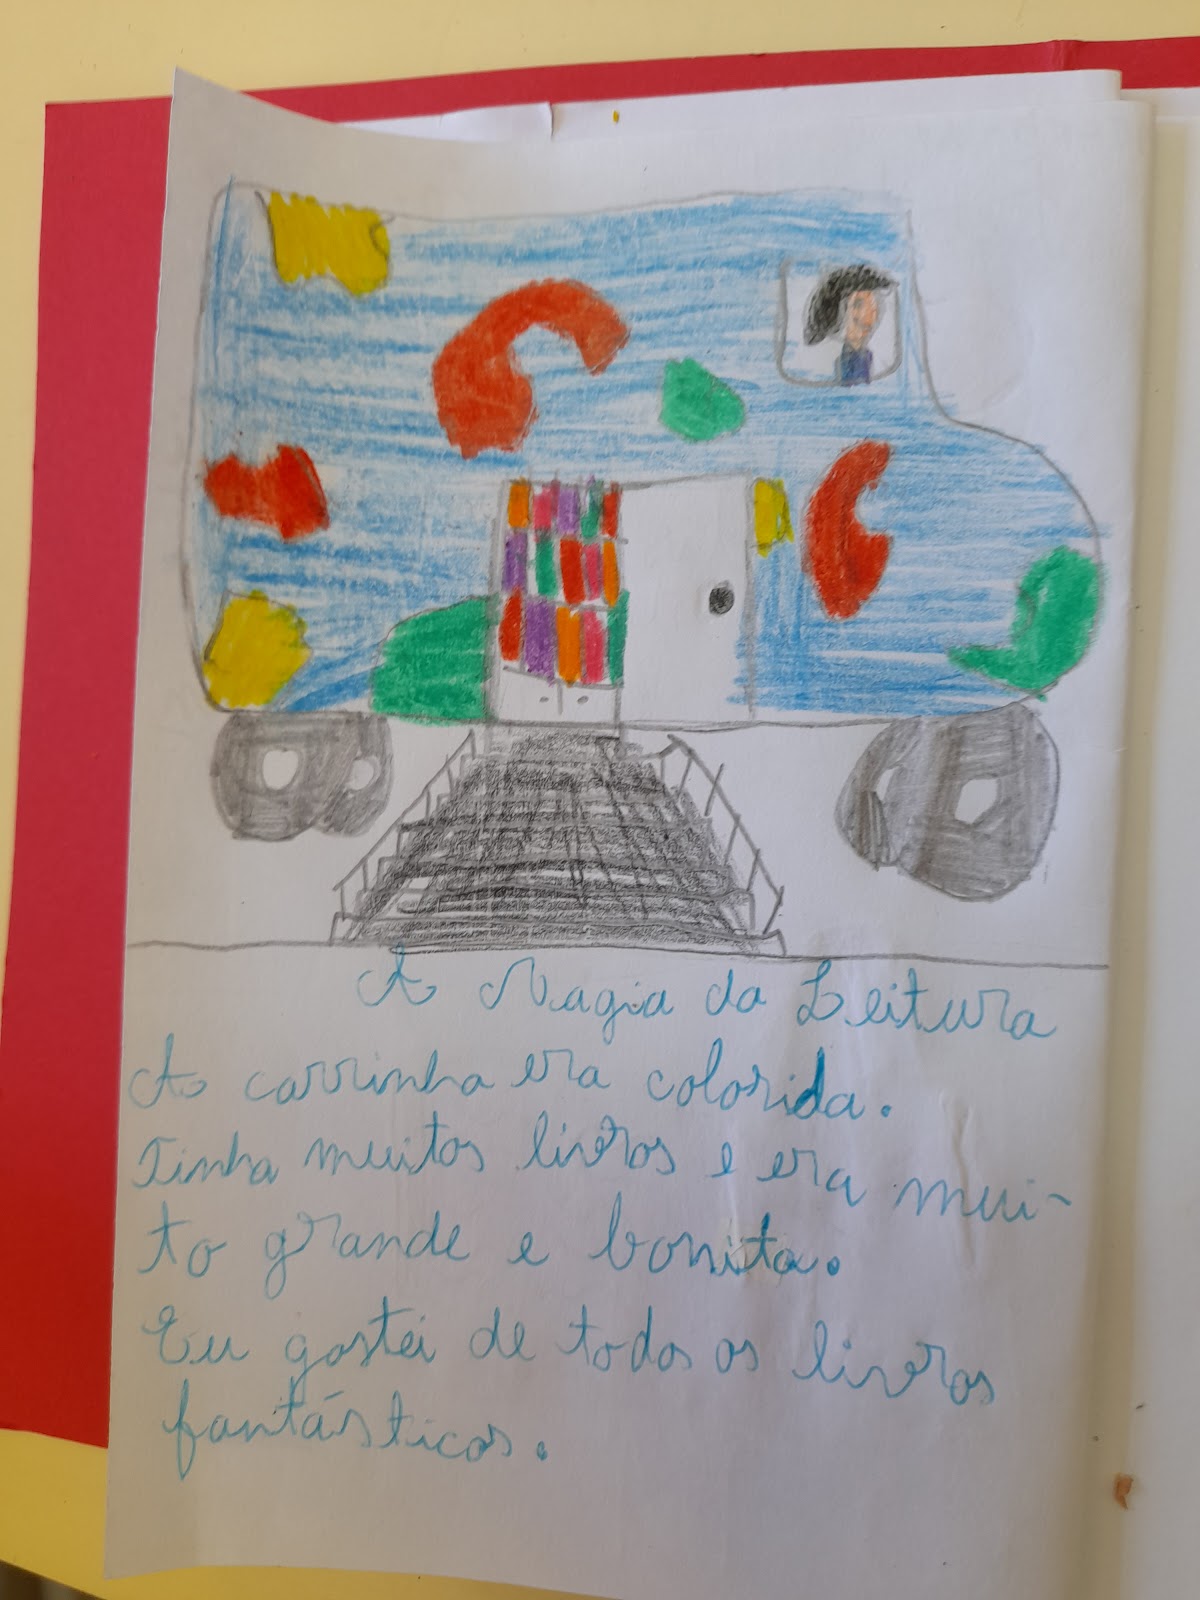 A Magia da Leitura
A carrinha era colorida.
Tinha muitos livros e era mui-
to grande e bonita.
Eu gostei de todos os livros
fantásticos.